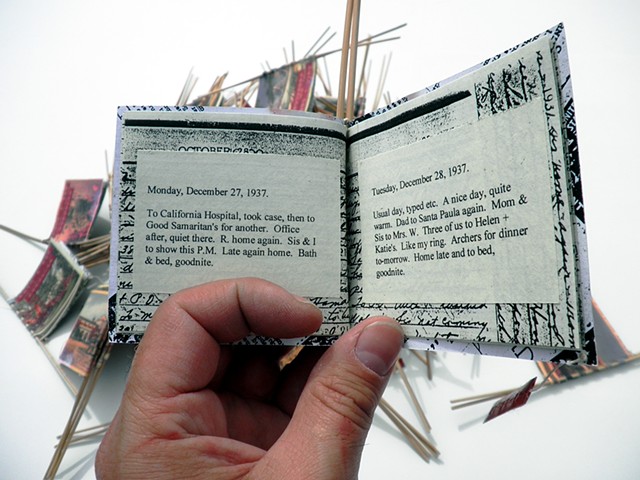 OCTOBER 28
Monday, December 27, 1937.
To California Hospital, took case, then to
Good Samaritan's for another. Office
after, quiet there. R. home again. Sis & I
to show this P.M. Late again home. Bath
& bed, goodnite.
Tuesday, December 28, 1937.
Usual day, typed etc. A nice day, quite
warm. Dad to Santa Paula again. Mom &
Sis to Mrs. W. Three of us to Helen +
Katie's. Like my ring. Archers for dinner
to-morrow. Home late and to bed,
goodnite.
not coming